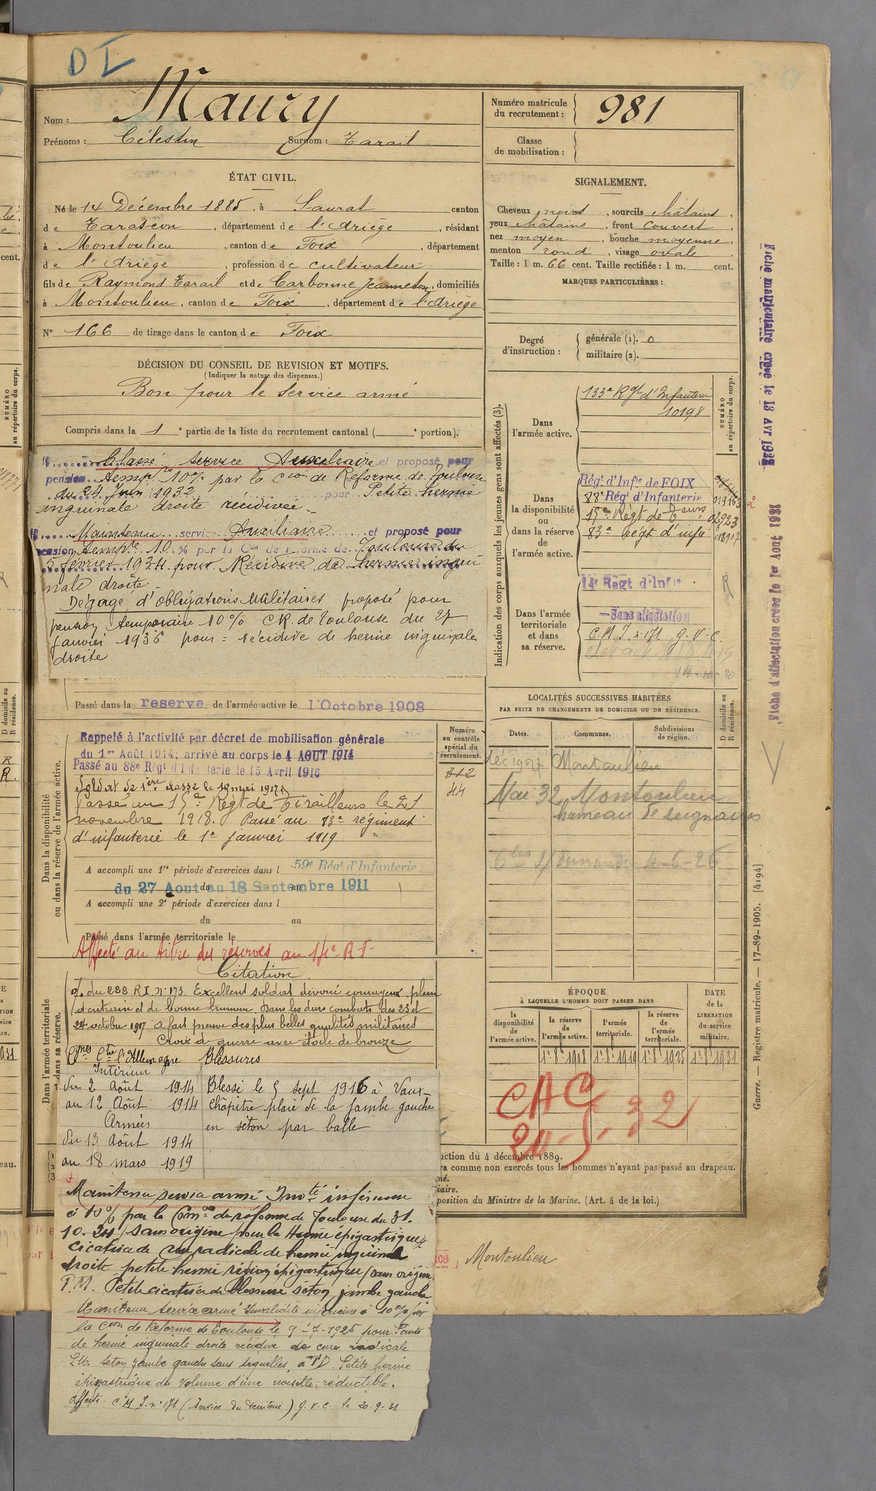 DI
Nom : Maury
Prénoms : Célestin Surnom : Tarail
ÉTAT CIVIL.
Né le 14 Décembre 1885, à Saurat canton
de Tarascon, département de l'Ariège, résidant
à Montoulieu, canton de Foix, département
de l'Ariège, profession de cultivateur
fils de Raymond Tarail et de Carbonne Jeanneton, domiciliés
à Montoulieu, canton de Foix, département de l'Ariège
N° 166 de tirage dans le canton de Foix
DÉCISION DU CONSEIL DE REVISION ET MOTIFS.
(Indiquer la nature des dispenses.)
Bon pour le service armé
Compris dans la 1e partie de la liste du recrutement cantonal ( e portion).
Classé service Auxiliaire et proposé pour
pension temp. 10% par la Con de Réforme de Toulouse
du 24 Juin 1932 pour Petite hernie
inguinale droite récidivée
Maintenu service Auxiliaire et proposé pour
pension temp. 10 % par la Con de Réforme de Toulouse du
5 février 1934 pour Récidive de hernie ingui
nale droite.
Dégagé d'obligations Militaires proposé pour
pension temporaire 10% CR de Toulouse du 27
janvier 1936 pour = récidive de hernie inguinale
droite
Passé dans la reserve de l'armée active le 1 Octobre 1908
Dans la disponibilité
ou dans la réserve de l'armée active.
Rappelé à l'activité par décret de mobilisation générale
du 1er Août 1914; arrivé au corps le 4 AOUT 1914
Passé au 88e Régt d'Infanterie le 15 Avril 1916
Soldat de 1ère classe le 19 mai 1917
Passé au 15e Régt de Tirailleurs le 21
novembre 1918. Passé au 83e régiment
d'infanterie le 1er janvier 1919
Numéro
au contrôle
spécial du
recrutement.
312
44
A accompli une 1re période d'exercices dans l 59e Régt d'Infanterie
du 27 Aout au 18 Septembre 1911
A accompli une 2e période d'exercices dans l
du au
Passé dans l'armée territoriale le
Affecté au titre des réserves au 14e R I
Dans l'armée territoriale
et dans sa réserve.
Citation
O. du 288 R.I. N° 173. Excellent soldat dévoué courageux plein
d'entrain et de bonne humeur. Dans les durs combats des 23 et
24 octobre 1917 a fait preuve des plus belles qualités militaires
Croix de guerre avec étoile de bronze
Cgnes Cte l'Allemagne Blessures
Intérieur
du 2 Août 1914 Blessé le 5 sept 1916 à Vaux-
au 12 Août 1914 Chapitre plaie de la jambe gauche
Armées en séton par balle
du 13 Août 1914
au 18 mars 1919
Maintenu service armé Invté inférieure
à 10% par la Comon de réforme de Toulouse du 31.
10.24 / sans origine pour la Hernie épigastrique
cicatrice de cure radicale de hernie inguinale
droite petite hernie région épigastrique (sans origine
P.M. Petite cicatrice de blessure séton jambe gauche
Maintenu service armé Invalidité inférieure à 10% par
la Con de Réforme de Toulouse le 9-7-1925 pour
de hernie inguinale droite récidive de cure radicale
séton jambe gauche sans séquelles. Petite hernie
épigastrique du volume d'une noisette, réductible.
Affecté. C M I n° 171 (Service du territoire) G.V.C. le 20-9-31
Numéro matricule
du recrutement : 981
Classe
de mobilisation :
SIGNALEMENT.
Cheveux noirs, sourcils châtains,
yeux châtains, front couvert
nez moyen, bouche moyenne
menton rond, visage ovale
Taille : 1 m. 66 cent. Taille rectifiée : 1 m. cent.
MARQUES PARTICULIÈRES :
Degré
d'instruction :
générale (1). 0
militaire (2).
Indication des corps auxquels les jeunes gens sont affectés (3).
NUMÉRO
au répertoire du corps.
Dans
l'armée active.
133e Rgt d'Infanterie
10198
Dans
la disponibilité
ou
dans la réserve
de
l'armée active.
Régt d'Infie de FOIX
88e Régt d'Infanterie
15e Régt de Teurs
83e Régt d'infie
Dans l'armée
territoriale
et dans
sa réserve.
14e Régt d'Infie
Sans affectation
C.M.I. n° 171 G.V.C.
LOCALITÉS SUCCESSIVES HABITÉES
PAR SUITE DE CHANGEMENTS DE DOMICILE OU DE RÉSIDENCE.
Dates. Communes. Subdivisions
de région.
D domicile ou
R résidence.
Montoulieu
Mai 32 Montoulieu
hameau de Seignaux
ÉPOQUE
À LAQUELLE L'HOMME DOIT PASSER DANS
la
disponibilité
de
l'armée active.
la réserve
de
l'armée active.
l'armée
territoriale.
la réserve
de
l'armée
territoriale.
DATE
de la
LIBÉRATION
du service
militaire.
CAG
24-5-32
uction du 4 décembre 1889.
ra comme non exercés tous les hommes n'ayant pas passé au drapeau.
position du Ministre de la Marine. (Art. 4 de la loi.)
Montoulieu
Fiche matriculaire créée le 13 Avr 1932
Fiche d'affectation créée le 1er Aout 1931
Guerre. — Registre matricule. — 17-89-1905. [4194]